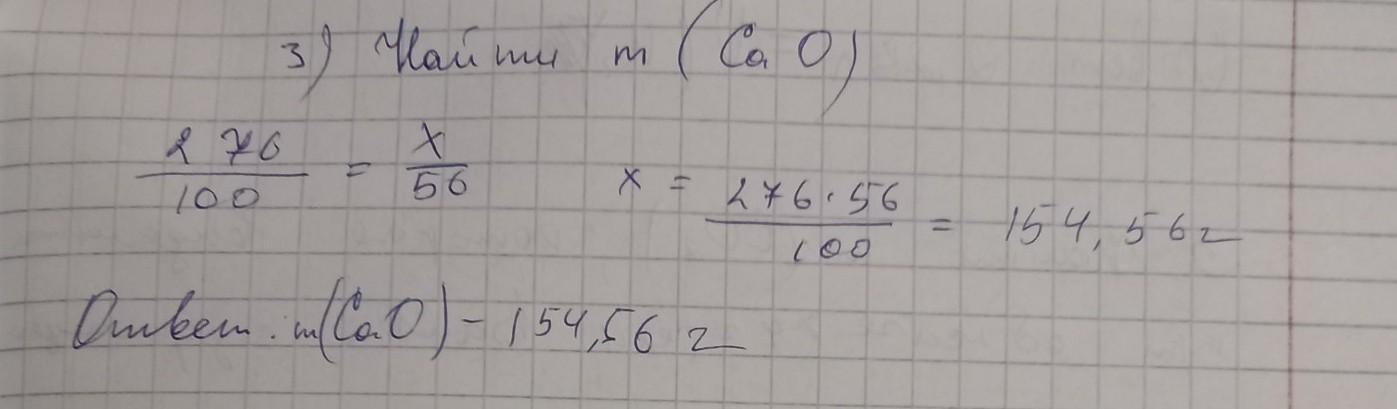 3) Найти m (CaO)
276/100 = x/56 x = 276·56/100 = 154,56 г
Ответ: m(CaO) - 154,56 г